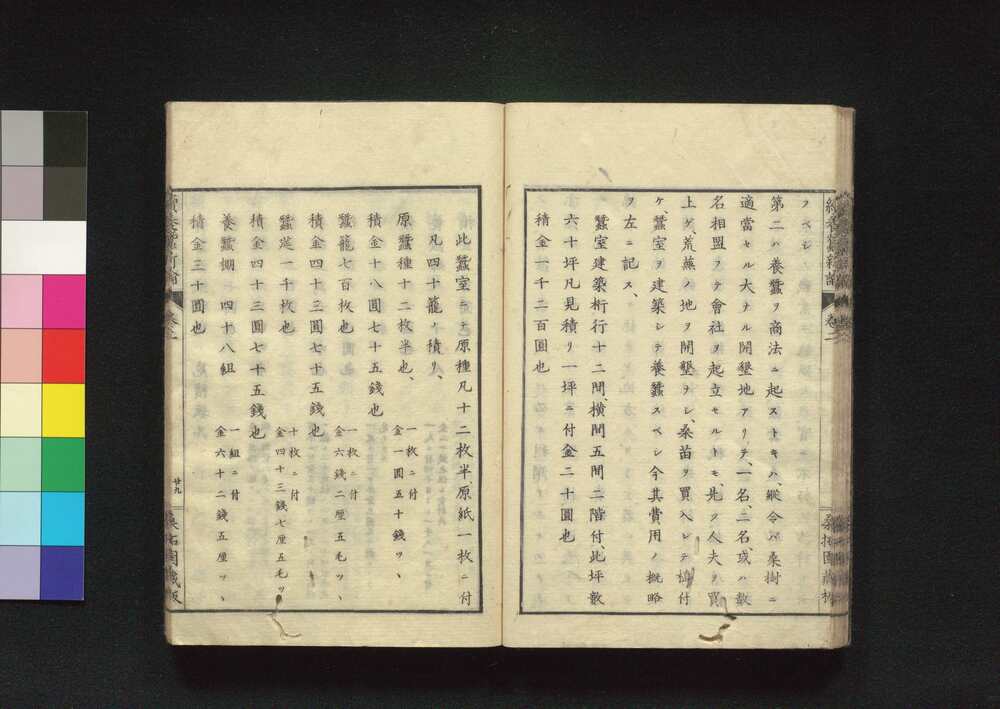 ノベシ
第二ハ養蠶ヲ商法ニ起ストキハ、縱令バ桑樹ニ
適當セル大ナル開墾地アリテ、一名、二名、或ハ數
名相盟ヲテ會社ヲ起立セルトモ、先ツ人夫ヲ買
上ゲ、荒蕪ノ地ヲ開墾ヲナシ、桑苗ヲ買入レテ植付
ケ、蠶室ヲ建築シテ養蠶スベシ今其費用ノ概略
ヲ左ニ記ス、
蠶室建築桁行十二間、横間五間二階付、此坪數
六十坪凡見積リ一坪ニ付金二十圓也
積金一千二百圓也
此蠶室ニテ原種凡十二枚半、原紙一枚ニ付
凡四十籠ノ積リ、
原蠶種十二枚半也、
一枚ニ付
金一圓五十錢ツヽ
積金十八圓七十五錢也
蠶籠七百枚也
一枚ニ付
金六錢二厘五毛ツヽ
積金四十三圓七十五錢也
蠶莚一千枚也
十枚ニ付
金四十三錢七厘五毛ツヽ
積金四十三圓七十五錢也
養蠶棚 四十八組
一組ニ付
金六十二錢五厘ツヽ
積金三十圓也
續養蠶新論
卷二
廿九
桑柘園藏版